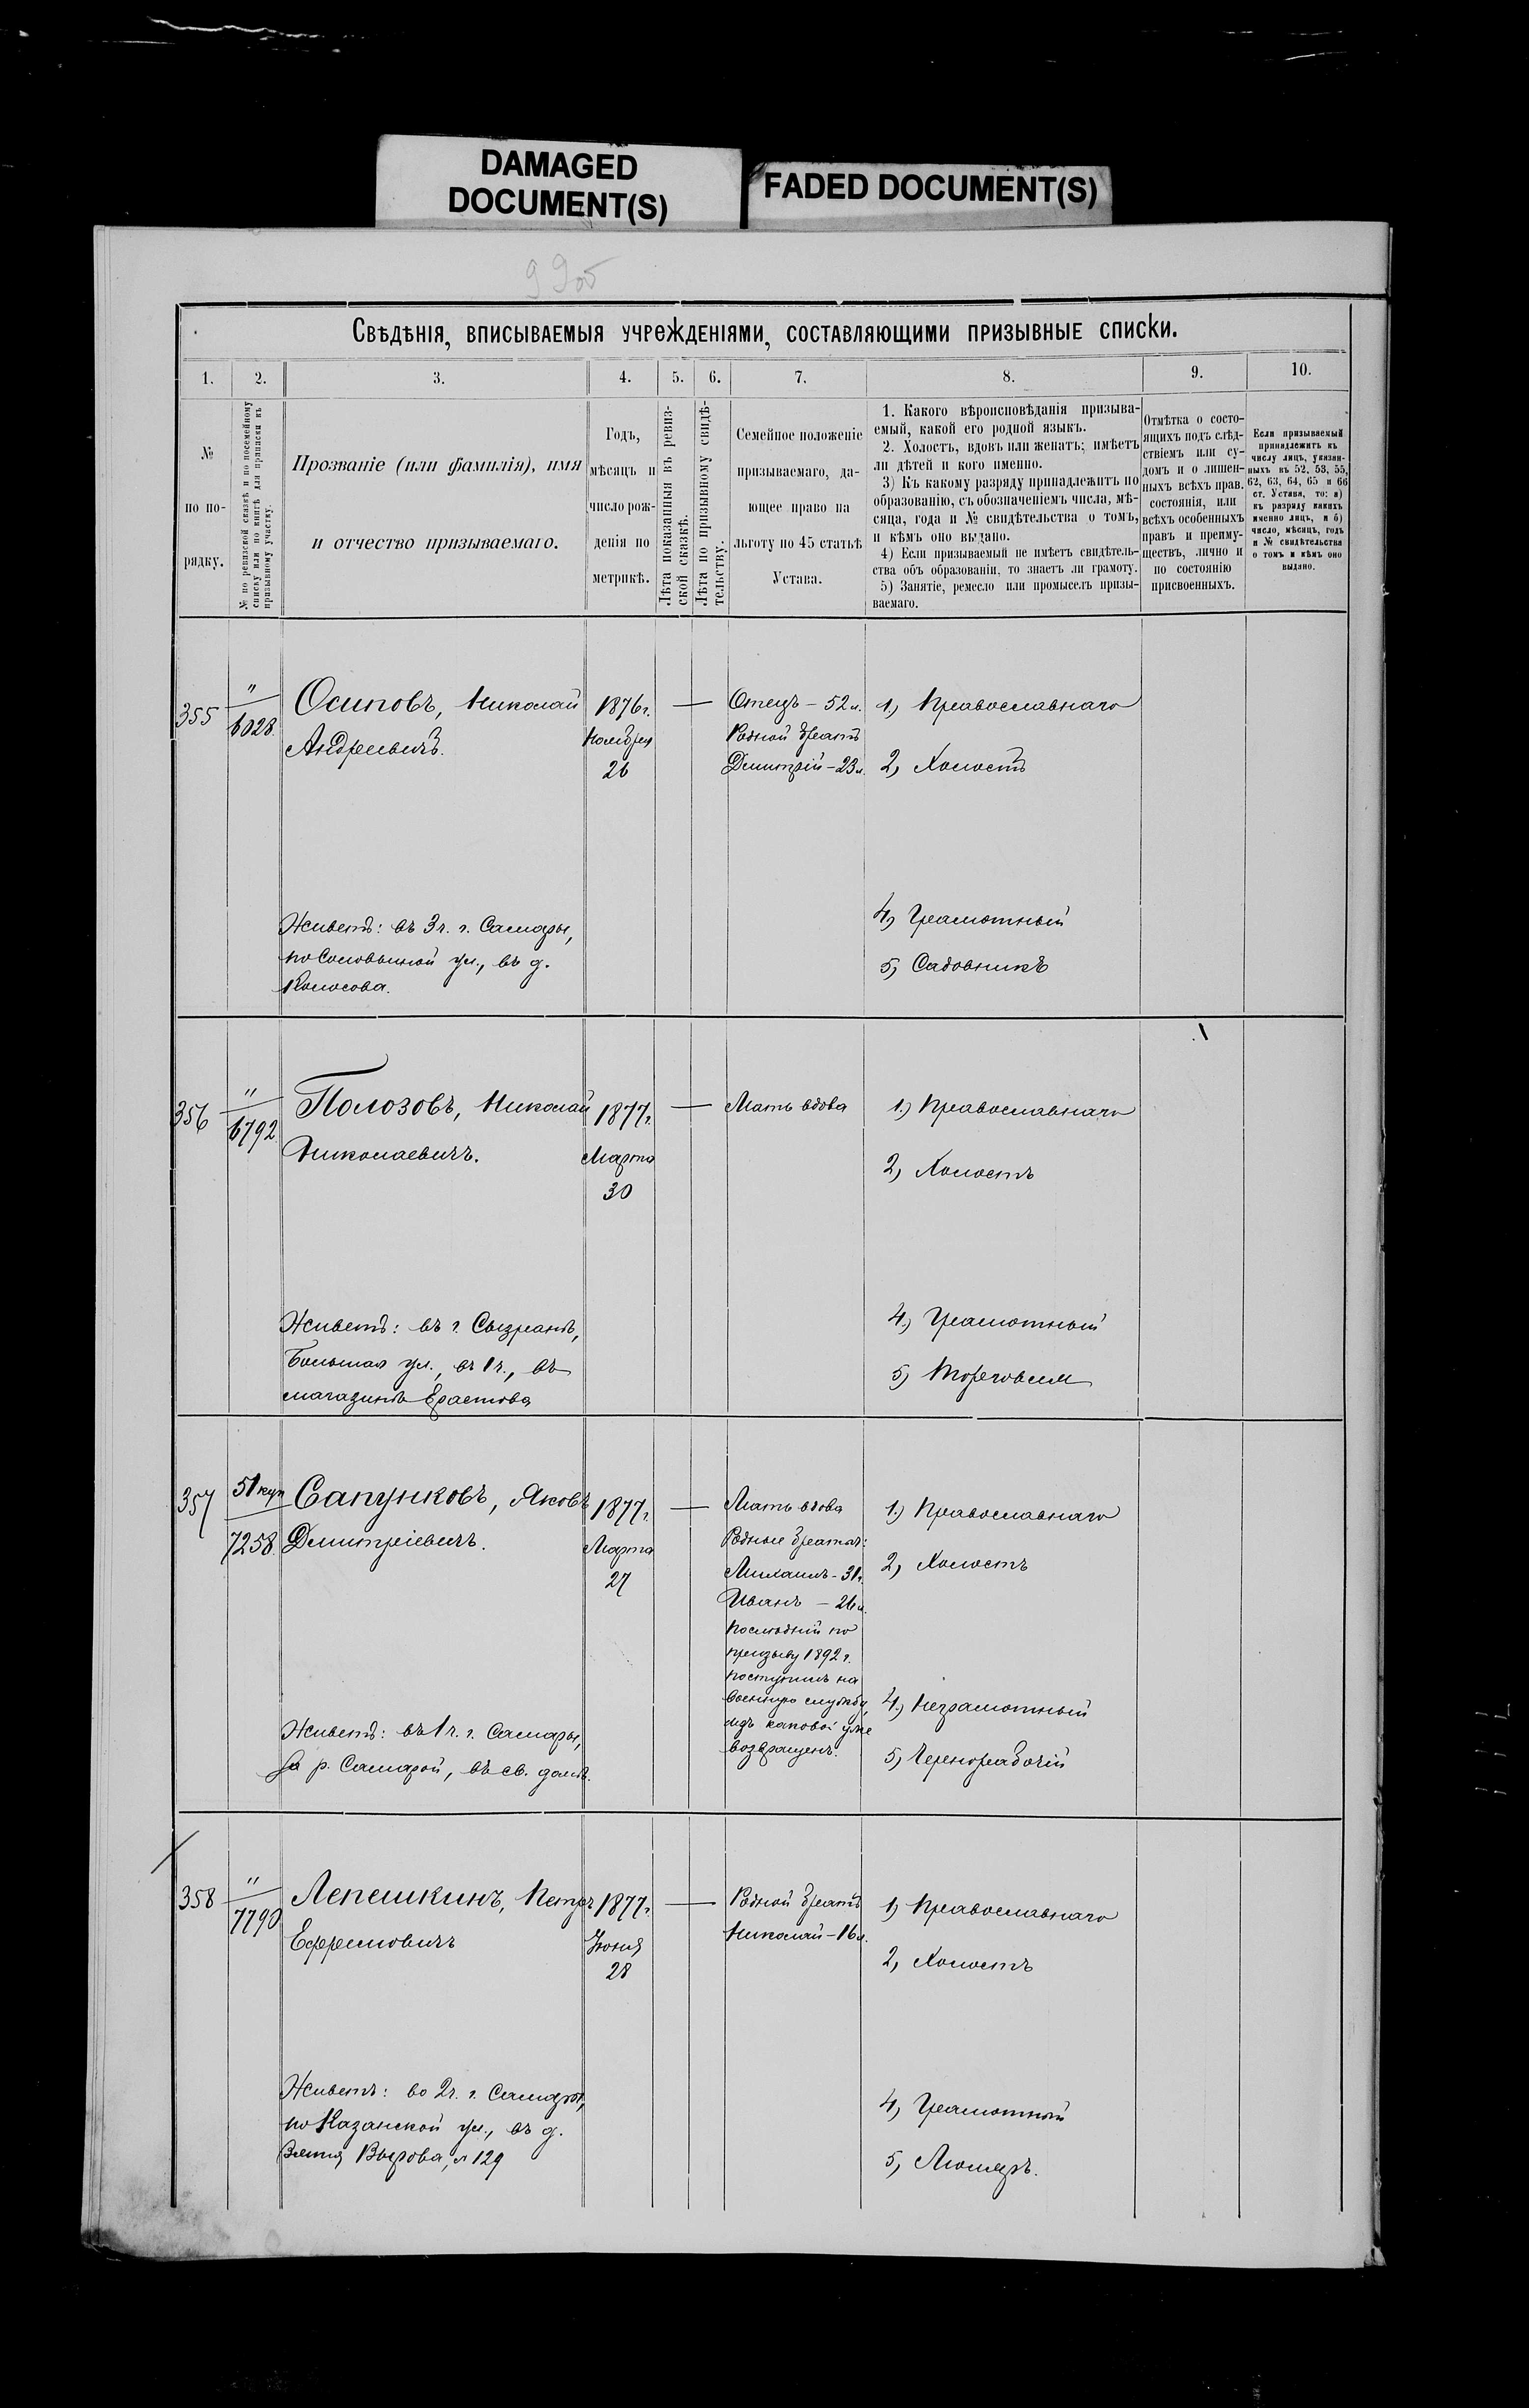 DAMAGED
DOCUMENT(S)
FADED DOCUMENT(S)
99об
Свѣдѣнія, вписываемыя учрежденіями, составляющими призывные списки.
1. 2. 3. 4. 5. 6. 7. 8. 9. 10.
№
по по-
рядку.
№ по ревизской сказкѣ и по посемейному
списку или по книгѣ для приписки къ
призывному участку.
Прозваніе (или фамилія), имя
и отчество призываемаго.
Годъ,
мѣсяцъ и
число рож-
денія по
метрикѣ.
Лѣта показанныя въ ревиз-
ской сказкѣ.
Лѣта по призывному свидѣ-
тельству.
Семейное положеніе
призываемаго, да-
ющее право на
льготу по 45 статьѣ
Устава.
1. Какого вѣроисповѣданія призыва-
емый, какой его родной языкъ.
2. Холостъ, вдовъ или женатъ; имѣетъ
ли дѣтей и кого именно.
3) Къ какому разряду принадлежитъ по
образованію, съ обозначеніемъ числа, мѣ-
сяца, года и № свидѣтельства о томъ,
и кѣмъ оно выдано.
4) Если призываемый не имѣетъ свидѣтель-
ства объ образованіи, то знаетъ ли грамоту.
5) Занятіе, ремесло или промыселъ призы-
ваемаго.
Отмѣтка о состо-
ящихъ подъ слѣд-
ствіемъ или су-
домъ и о лишен-
ныхъ всѣхъ прав.
состоянія, или
всѣхъ особенныхъ
правъ и преиму-
ществъ, лично и
по состоянію
присвоенныхъ.
Если призываемый
принадлежитъ къ
числу лицъ, указан-
ныхъ въ 52, 53, 55,
62, 63, 64, 65 и 66
ст. Устава, то: а)
къ разряду какихъ
именно лицъ, и б)
число, мѣсяцъ, годъ
и № свидѣтельства
о томъ и кѣмъ оно
выдано.
355
"
6028.
Осиповъ, Николай
Андреевичъ.
1876г.
Ноября
26
—
Отецъ – 52 л.
Родной братъ
Дмитрій – 23 л.
1) Православнаго
2) Холостъ
4) Грамотный
5) Садовникъ
Живетъ: въ 3 ч. г. Самары,
по Соловьиной ул., въ д.
Колосова.
356
"
6792
Полозовъ, Николай
Николаевичъ.
1877г.
Марта
30
—
Мать вдова
1.) Православнаго
2) Холостъ
4.) Грамотный
5) Торговецъ
Живетъ: въ г. Сызрани,
Большая ул., въ 1 ч., въ
магазинѣ Ерастова
357
51 куп
7258.
Сапунковъ, Яковъ
Дмитріевичъ.
1877г.
Марта
27
—
Мать вдова
Родные братья:
Михаилъ – 31 г.
Иванъ – 26 л.
последній по
призыву 1892 г.
поступилъ на
военную службу,
съ каковой уже
возвращенъ.
1.) Православнаго
2) Холостъ
4.) Неграмотный
5) Чернорабочій
Живетъ: въ 1 ч. г. Самары,
за р. Самарой, въ св. домѣ.
358
"
7790
Лепешкинъ, Петръ
Ефремовичъ
1877г.
Іюня
28
—
Родной братъ
Николай – 16 л.
1) Православнаго
2) Холостъ
4) Грамотный
5) Маляръ.
Живетъ: во 2 ч. г. Самары,
по Казанской ул., въ д.
Вырова, № 129